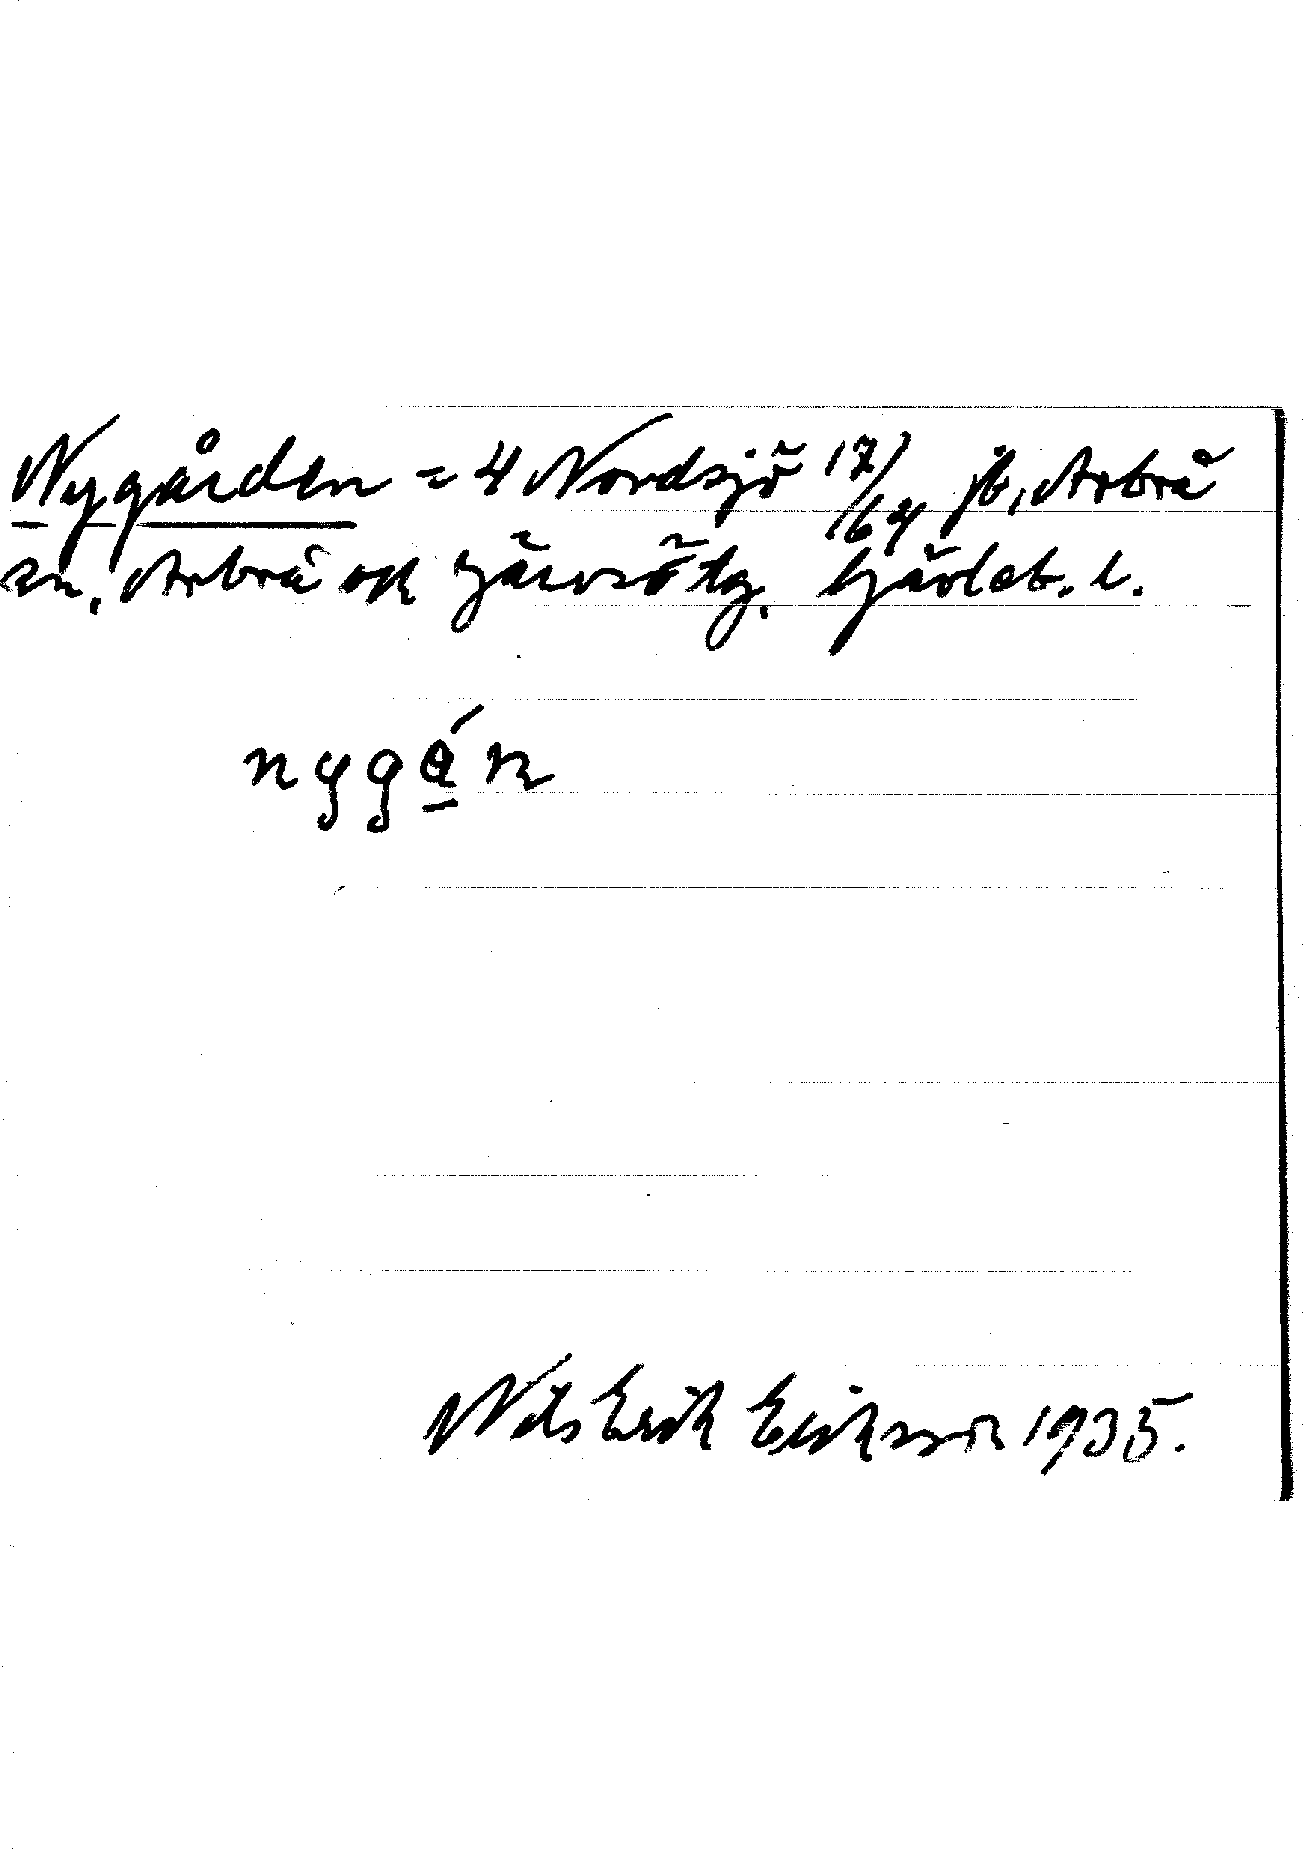 Nygården = 4 Nordsjö 17/64 jb, Arbrå
sn, Arbrå ock Järvsö tg. Gävleb. l.
nygǿn
Nils Erik Eriksson 1935.